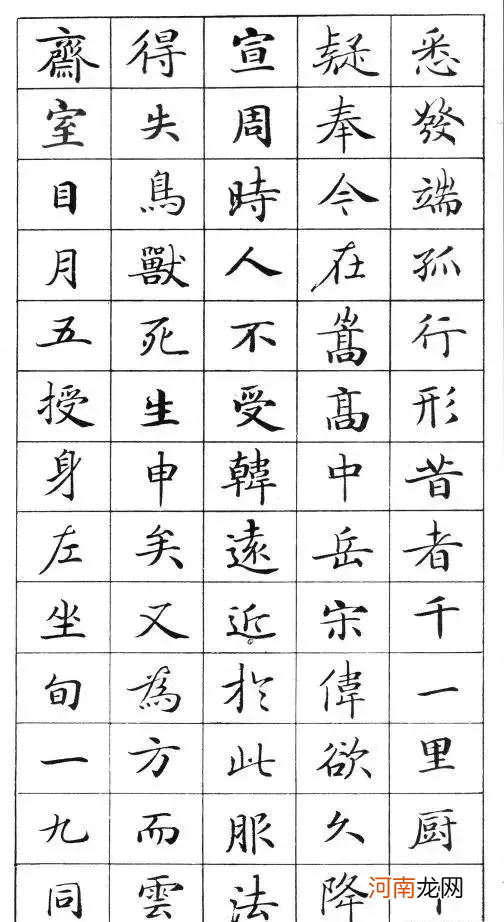 悉發端孤行形昔者千一里厨
疑奉今在嵩髙中岳宋偉欲久降
宣周時人不受韓遠近於此服法
得失鳥獸死生申矣又為方而雲
齋室目月五授身左坐旬一九同
河南龙网